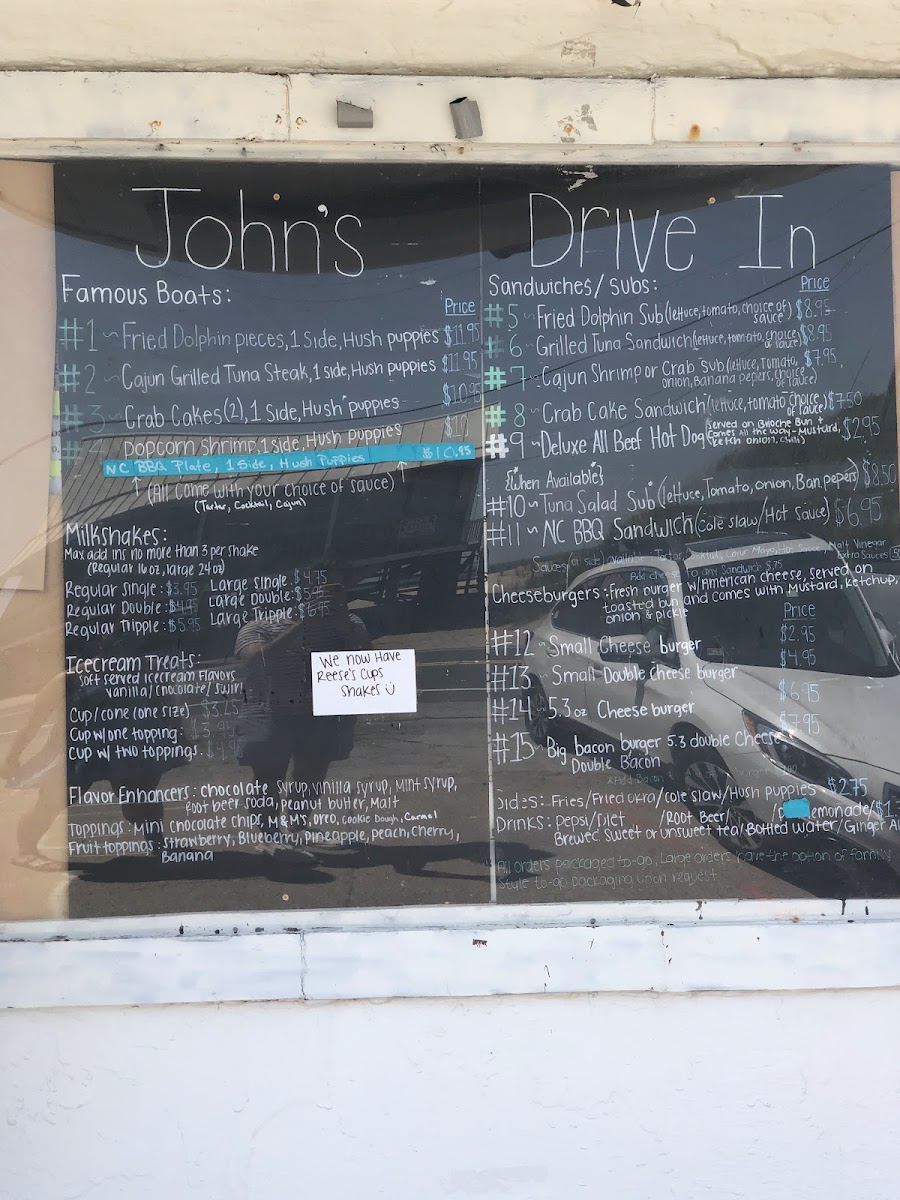 John's Drive In
Famous Boats:
Price
#1 ~ Fried Dolphin pieces, 1 Side, Hush puppies $11.95
#2 ~ Cajun Grilled Tuna Steak, 1 side, Hush puppies $11.95
#3 ~ Crab Cakes (2), 1 Side, Hush puppies $10.95
popcorn Shrimp, 1 side, Hush puppies
NC BBQ Plate, 1 Side, Hush Puppies $10.95
(All come with your choice of sauce)
(Tartar, Cocktail, Cajun)
Milkshakes:
Max add ins no more than 3 per shake
(Regular 16 oz, large 24 oz)
Regular Single: $3.95 Large single: $4.75
Regular Double: $4.95 Large Double: $5.95
Regular Tripple: $5.95 Large Tripple: $6.95
Icecream Treats:
soft served icecream Flavors
vanilla/chocolate/swirl
Cup/cone (one size) $3.25
Cup w/one topping:
Cup w/ two toppings:
We now Have
Reese's Cups
Shakes
Flavor Enhancers: chocolate syrup, vinilla syrup, mint syrup,
Root beer soda, peanut butter, Malt
Toppings: Mini chocolate chips, M&M's, Oreo, Cookie Dough, Carmel
Fruit toppings: Strawberry, Blueberry, Pineapple, peach, Cherry,
Banana
Sandwiches/Subs:
Price
#5 ~ Fried Dolphin Sub (lettuce, tomato, choice of sauce) $8.95
#6 ~ Grilled Tuna Sandwich (lettuce, tomato, choice of sauce) $8.95
#7 ~ Cajun Shrimp or Crab Sub (lettuce, Tomato, onion, Banana pepers, choice of sauce) $7.95
#8 ~ Crab Cake Sandwich (lettuce, tomato, choice of sauce) $7.50
#9 ~ Deluxe All Beef Hot Dog (served on Brioche Bun + comes All the way - Mustard, Ketch onion, chili) $2.95
{When Available}
#10 ~ Tuna Salad Sub (lettuce, Tomato, onion, Ban pepers) $8.50
#11 ~ NC BBQ Sandwich (Cole slaw/Hot Sauce) $6.95
Malt Vinegar
Extra Sauces
Add cheese to any Sandwich $.75
Cheeseburgers: Fresh burger w/American cheese, served on
toasted bun and comes with Mustard, ketchup,
onion & pickle
Price
#12 ~ Small Cheese burger $2.95
#13 ~ Small Double Cheese burger $4.95
#14 ~ 5.3 oz Cheese burger $6.95
#15 ~ Big bacon burger 5.3 double Cheese $7.95
Double Bacon
Sides: Fries/Fried okra/cole slaw/Hush puppies $2.75
Drinks: Pepsi/Diet /Root Beer/ emonade/
Brewed Sweet or unsweet tea/Bottled water/Ginger Al
All orders packaged to-go, Large orders have the option of family
Style to-go packaging upon request